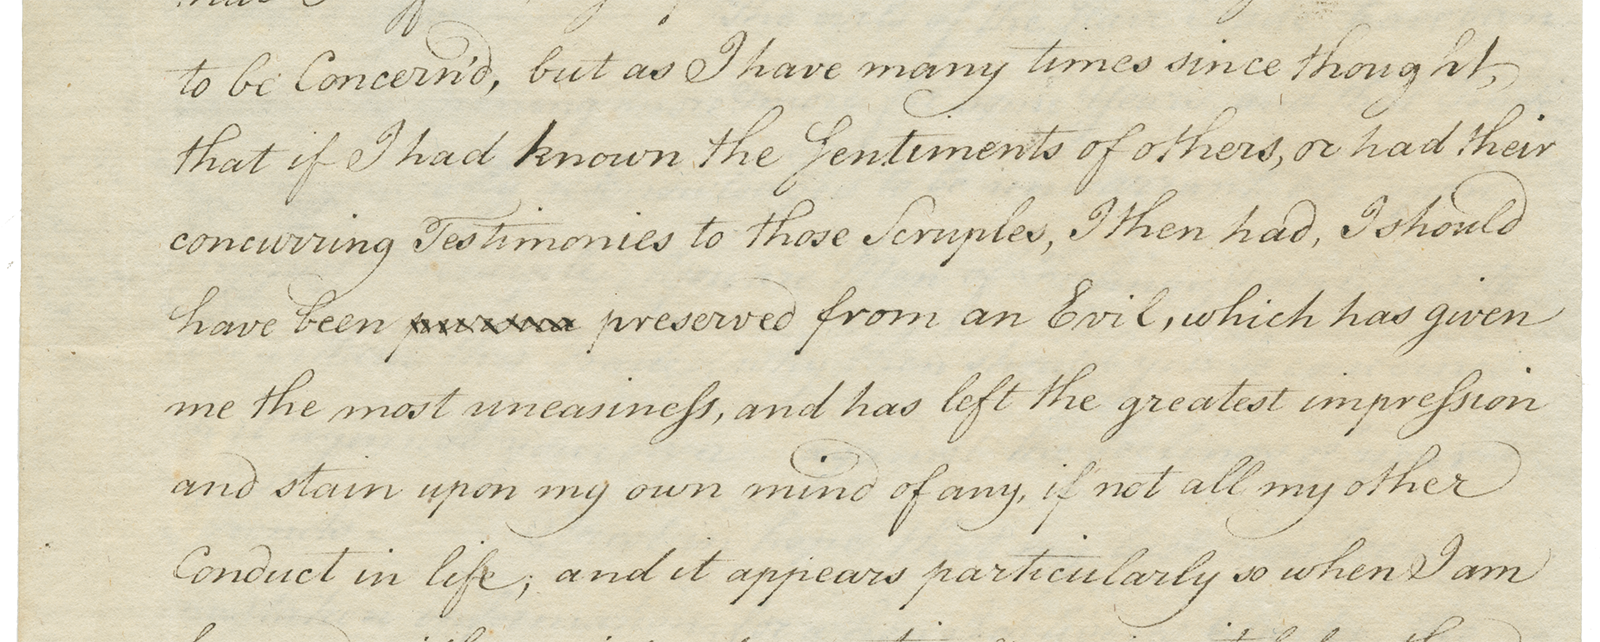 to be Concern'd, but as I have many times since thought,
that if I had known the Sentiments of others, or had their
concurring Testimonies to those Scruples, I then had, I should
have been preserved from an Evil, which has given
me the most uneasiness, and has left the greatest impression
and stain upon my own mind of any, if not all my other
Conduct in life; and it appears particularly so when I am